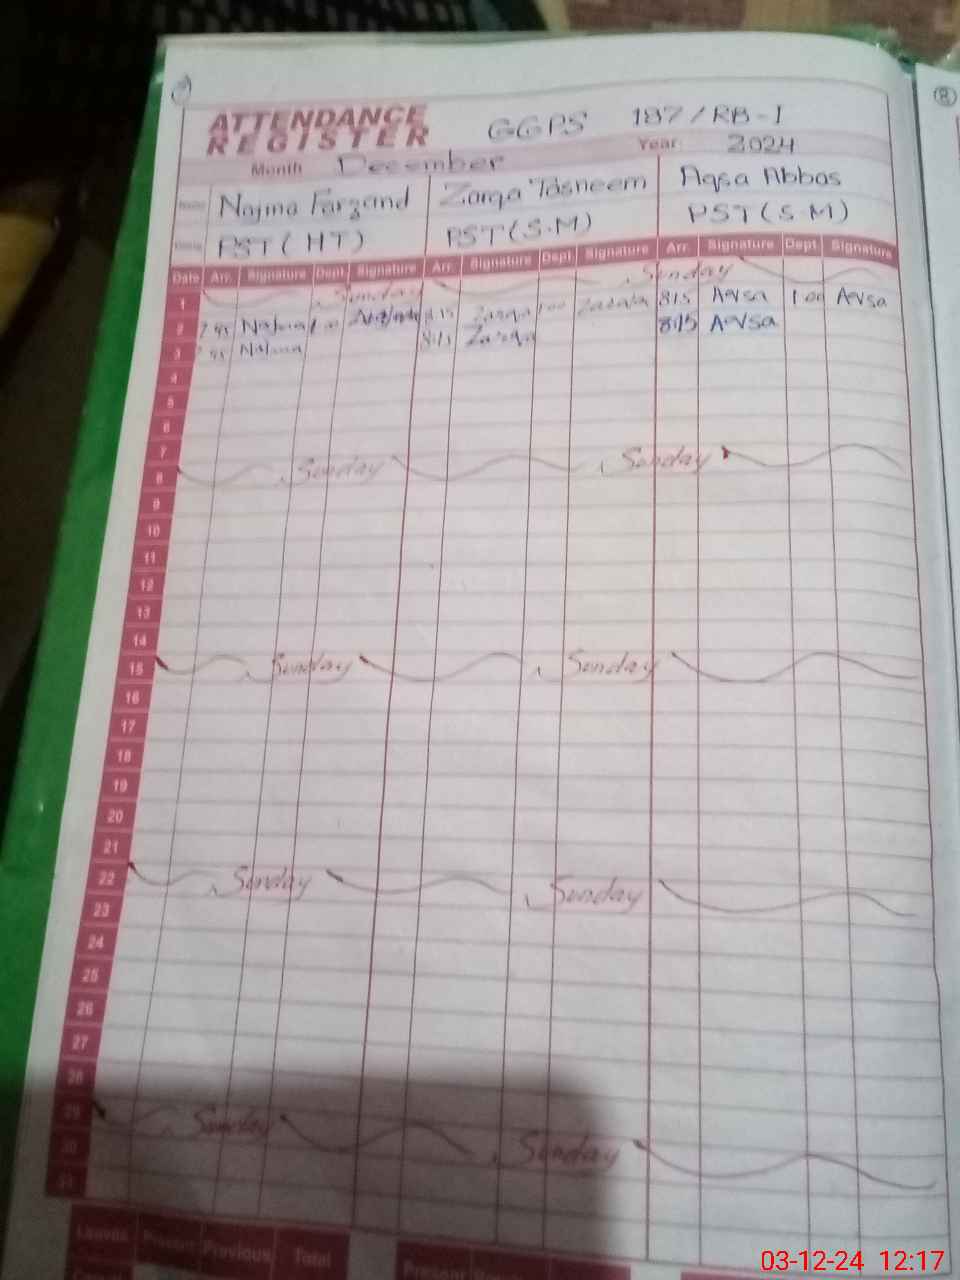 ATTENDANCE REGISTER GGPS 187/RB-I
Month December Year: 2024
Name Najma Farzand Zarqa Tasneem Aqsa Abbas
PST (HT) PST (S.M) PST (S.M)
Date Arr. Signature Dept Signature Arr. Signature Dept Signature Arr. Signature Dept Signature
1 Sunday Sunday
2 7 45 Najma 1 00 8:15 Zarqa 1 00 Zarqa 8:15 Aqsa 1 00 Aqsa
3 Najma 8:15 Zarqa 8:15 Aqsa
4
5
6
7
8 Sunday Sunday
9
10
11
12
13
14
15 Sunday Sunday
16
17
18
19
20
21
22 Sunday Sunday
23
24
25
26
27
28
29 Sunday Sunday
30
31
Leaves Present Previous Total Present
8
03-12-24 12:17